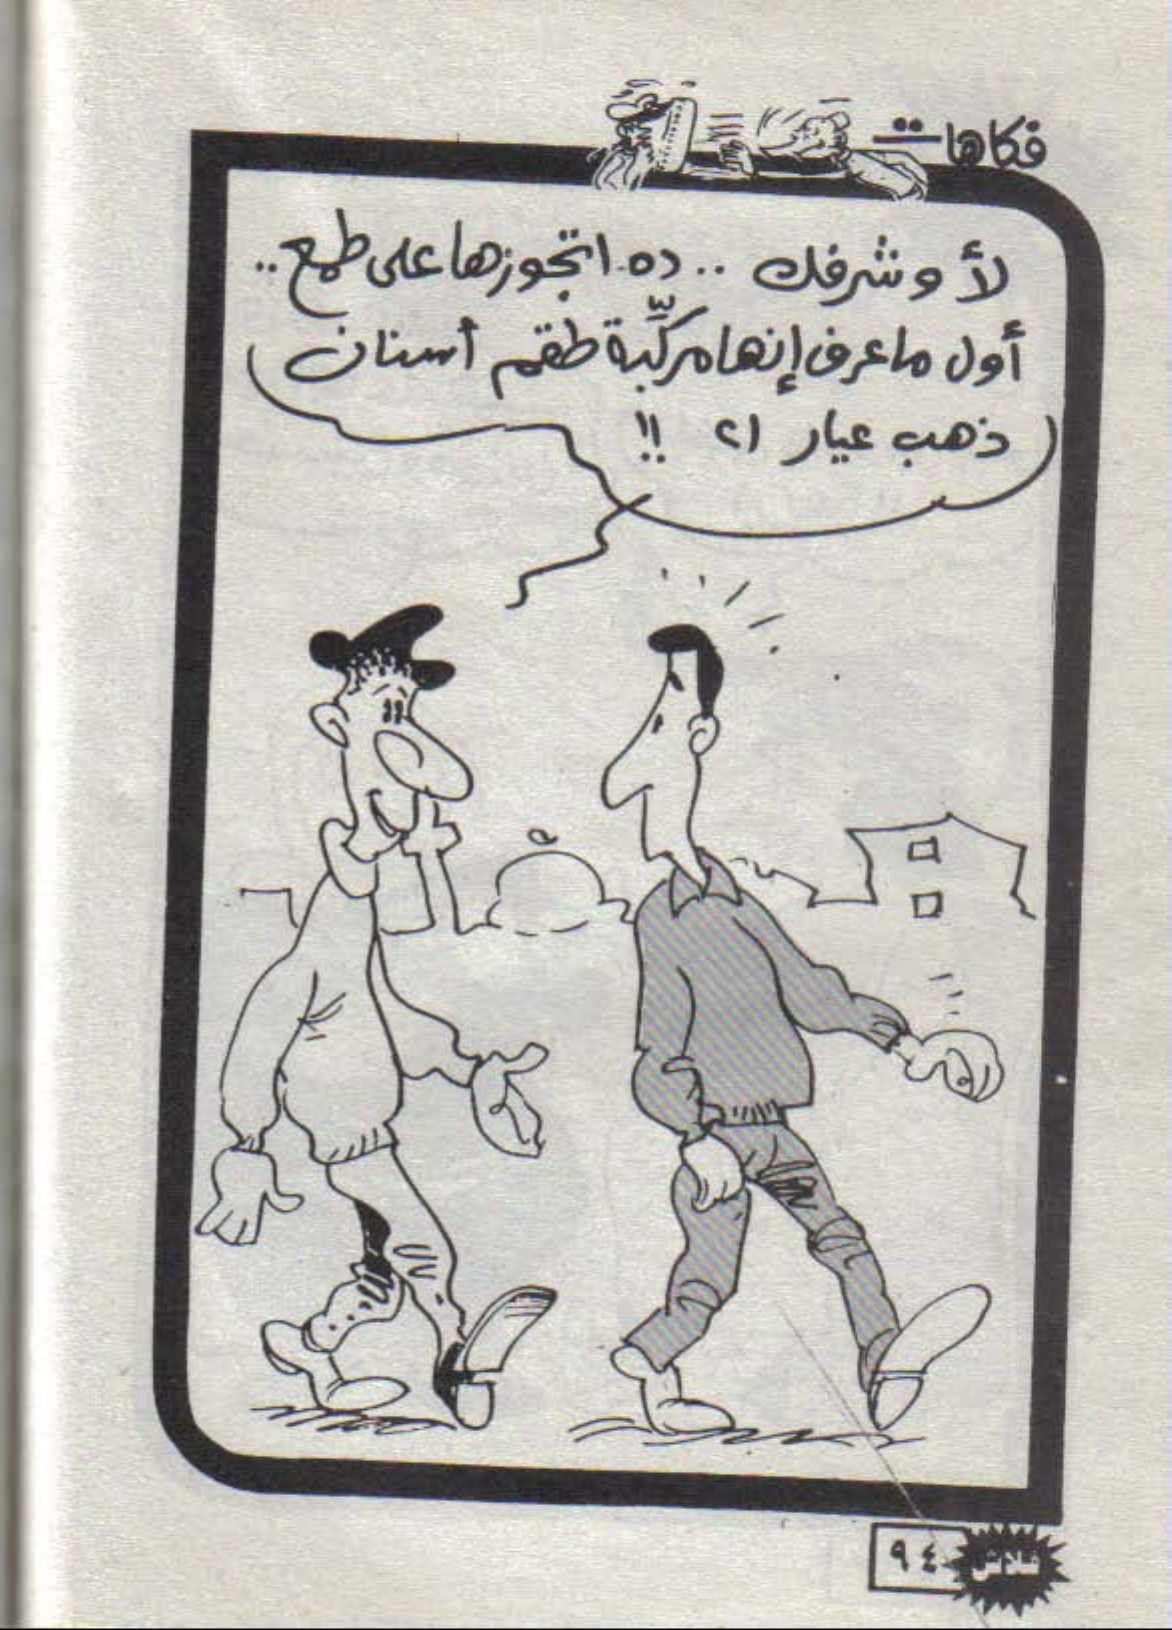 فكاهات
لأ وشرفك .. ده اتجوزها على طمع ..
أول ما عرف إنها مركِّبة طقم أسنان
ذهب عيار ٢١ !!
٩٤
فلاش